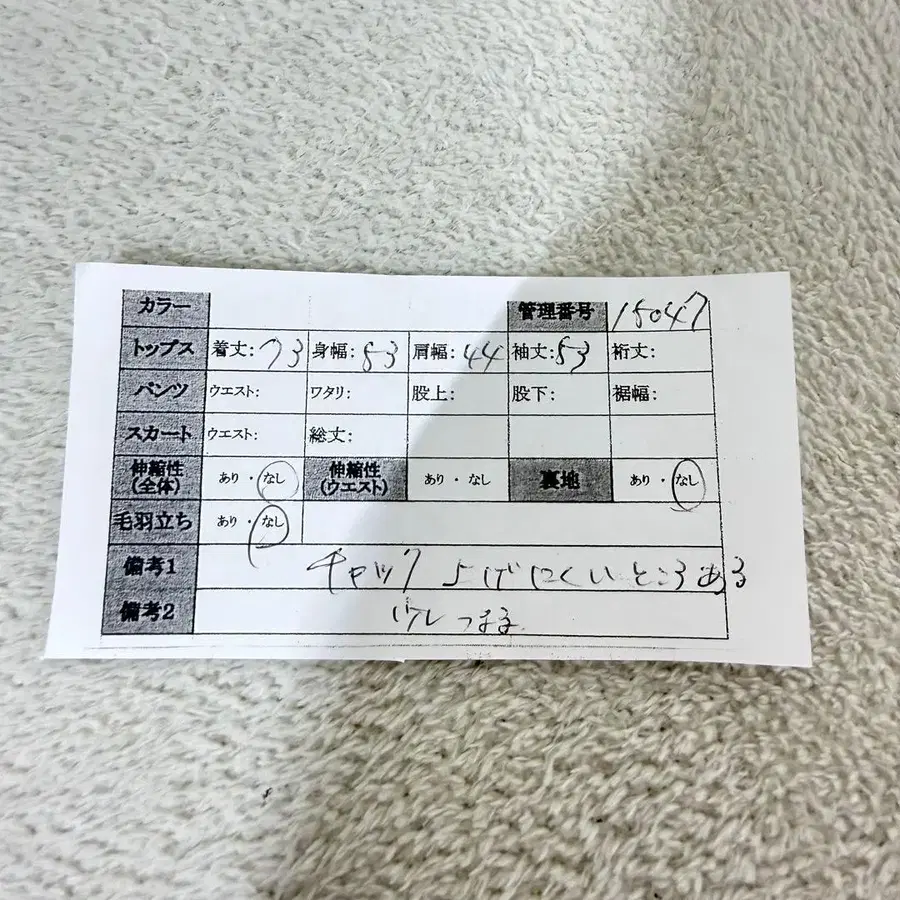 カラー 管理番号 15047
トップス 着丈:73 身幅:53 肩幅:44 袖丈:53 裄丈:
パンツ ウエスト: ワタリ: 股上: 股下: 裾幅:
スカート ウエスト: 総丈:
伸縮性(全体) あり・なし 伸縮性(ウエスト) あり・なし 裏地 あり・なし
毛羽立ち あり・なし
備考1 チャック 上げにくいところある
備考2 つまる